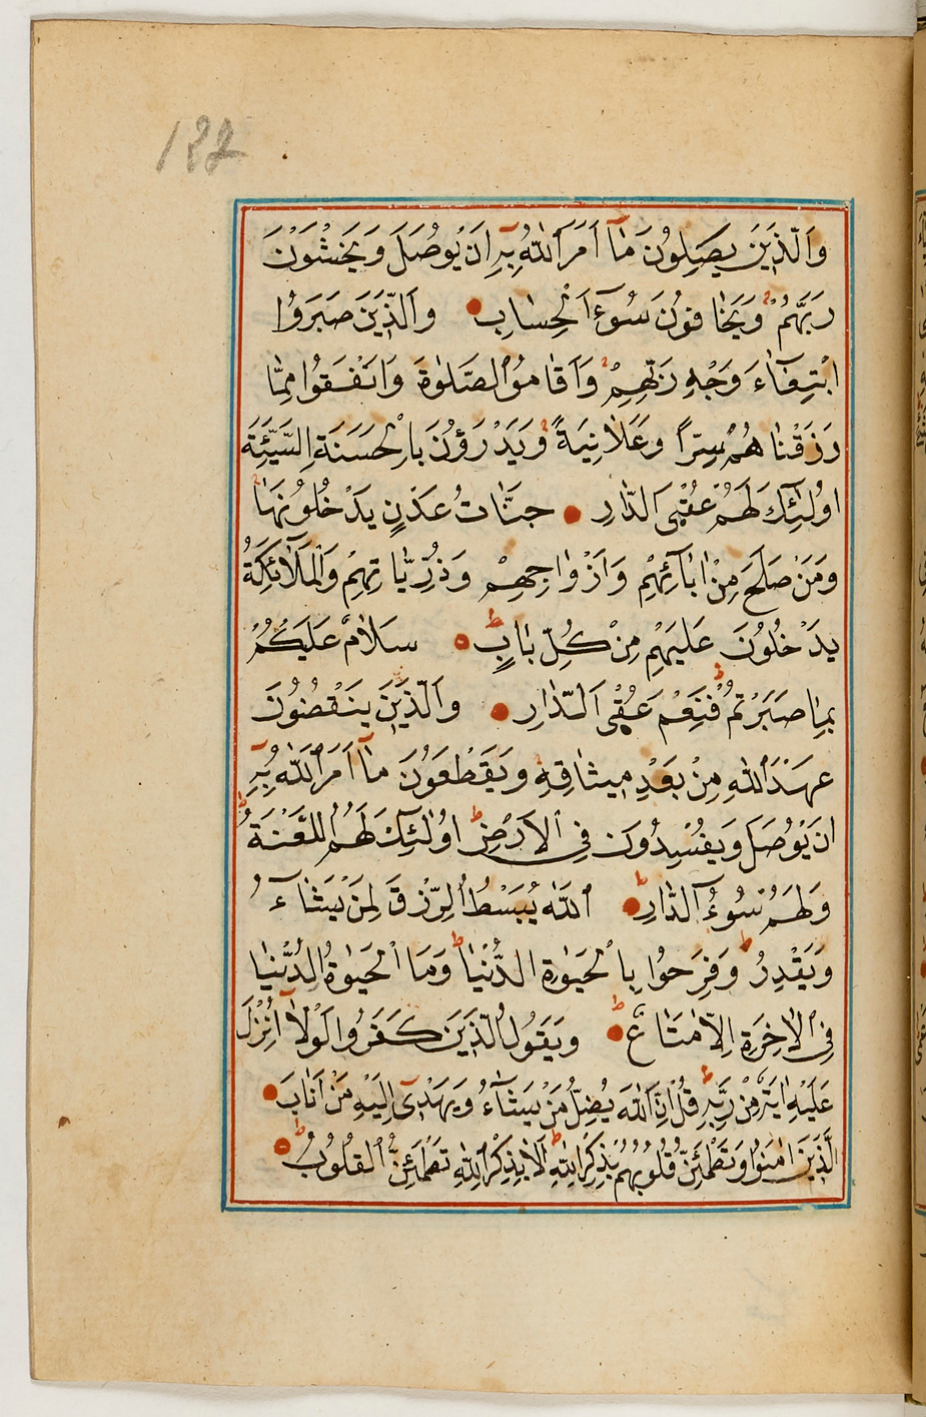 122
وَالَّذِينَ يَصِلُونَ مَٓا اَمَرَ اللّٰهُ بِهِٓ اَنْ يُوصَلَ وَيَخْشَوْنَ
رَبَّهُمْ وَيَخَافُونَ سُوٓءَ الْحِسَابِ وَالَّذِينَ صَبَرُوا
ابْتِغَٓاءَ وَجْهِ رَبِّهِمْ وَاَقَامُوا الصَّلٰوةَ وَاَنْفَقُوا مِمَّا
رَزَقْنَاهُمْ سِرًّا وَعَلَانِيَةً وَيَدْرَؤُنَ بِالْحَسَنَةِ السَّيِّئَةَ
اُولٰٓئِكَ لَهُمْ عُقْبَى الدَّارِ جَنَّاتُ عَدْنٍ يَدْخُلُونَهَا
وَمَنْ صَلَحَ مِنْ اٰبَٓائِهِمْ وَاَزْوَاجِهِمْ وَذُرِّيَّاتِهِمْ وَالْمَلٰٓئِكَةُ
يَدْخُلُونَ عَلَيْهِمْ مِنْ كُلِّ بَابٍ سَلَامٌ عَلَيْكُمْ
بِمَا صَبَرْتُمْ فَنِعْمَ عُقْبَى الدَّارِ وَالَّذِينَ يَنْقُضُونَ
عَهْدَ اللّٰهِ مِنْ بَعْدِ مِيثَاقِهِ وَيَقْطَعُونَ مَٓا اَمَرَ اللّٰهُ بِهِٓ
اَنْ يُوصَلَ وَيُفْسِدُونَ فِي الْاَرْضِ اُولٰٓئِكَ لَهُمُ اللَّعْنَةُ
وَلَهُمْ سُوٓءُ الدَّارِ اَللّٰهُ يَبْسُطُ الرِّزْقَ لِمَنْ يَشَٓاءُ
وَيَقْدِرُ وَفَرِحُوا بِالْحَيٰوةِ الدُّنْيَا وَمَا الْحَيٰوةُ الدُّنْيَا
فِي الْاٰخِرَةِ اِلَّا مَتَاعٌ وَيَقُولُ الَّذِينَ كَفَرُوا لَوْلَٓا اُنْزِلَ
عَلَيْهِ اٰيَةٌ مِنْ رَبِّهِ قُلْ اِنَّ اللّٰهَ يُضِلُّ مَنْ يَشَٓاءُ وَيَهْدِٓي اِلَيْهِ مَنْ اَنَابَ
الَّذِينَ اٰمَنُوا وَتَطْمَئِنُّ قُلُوبُهُمْ بِذِكْرِ اللّٰهِ اَلَا بِذِكْرِ اللّٰهِ تَطْمَئِنُّ الْقُلُوبُ